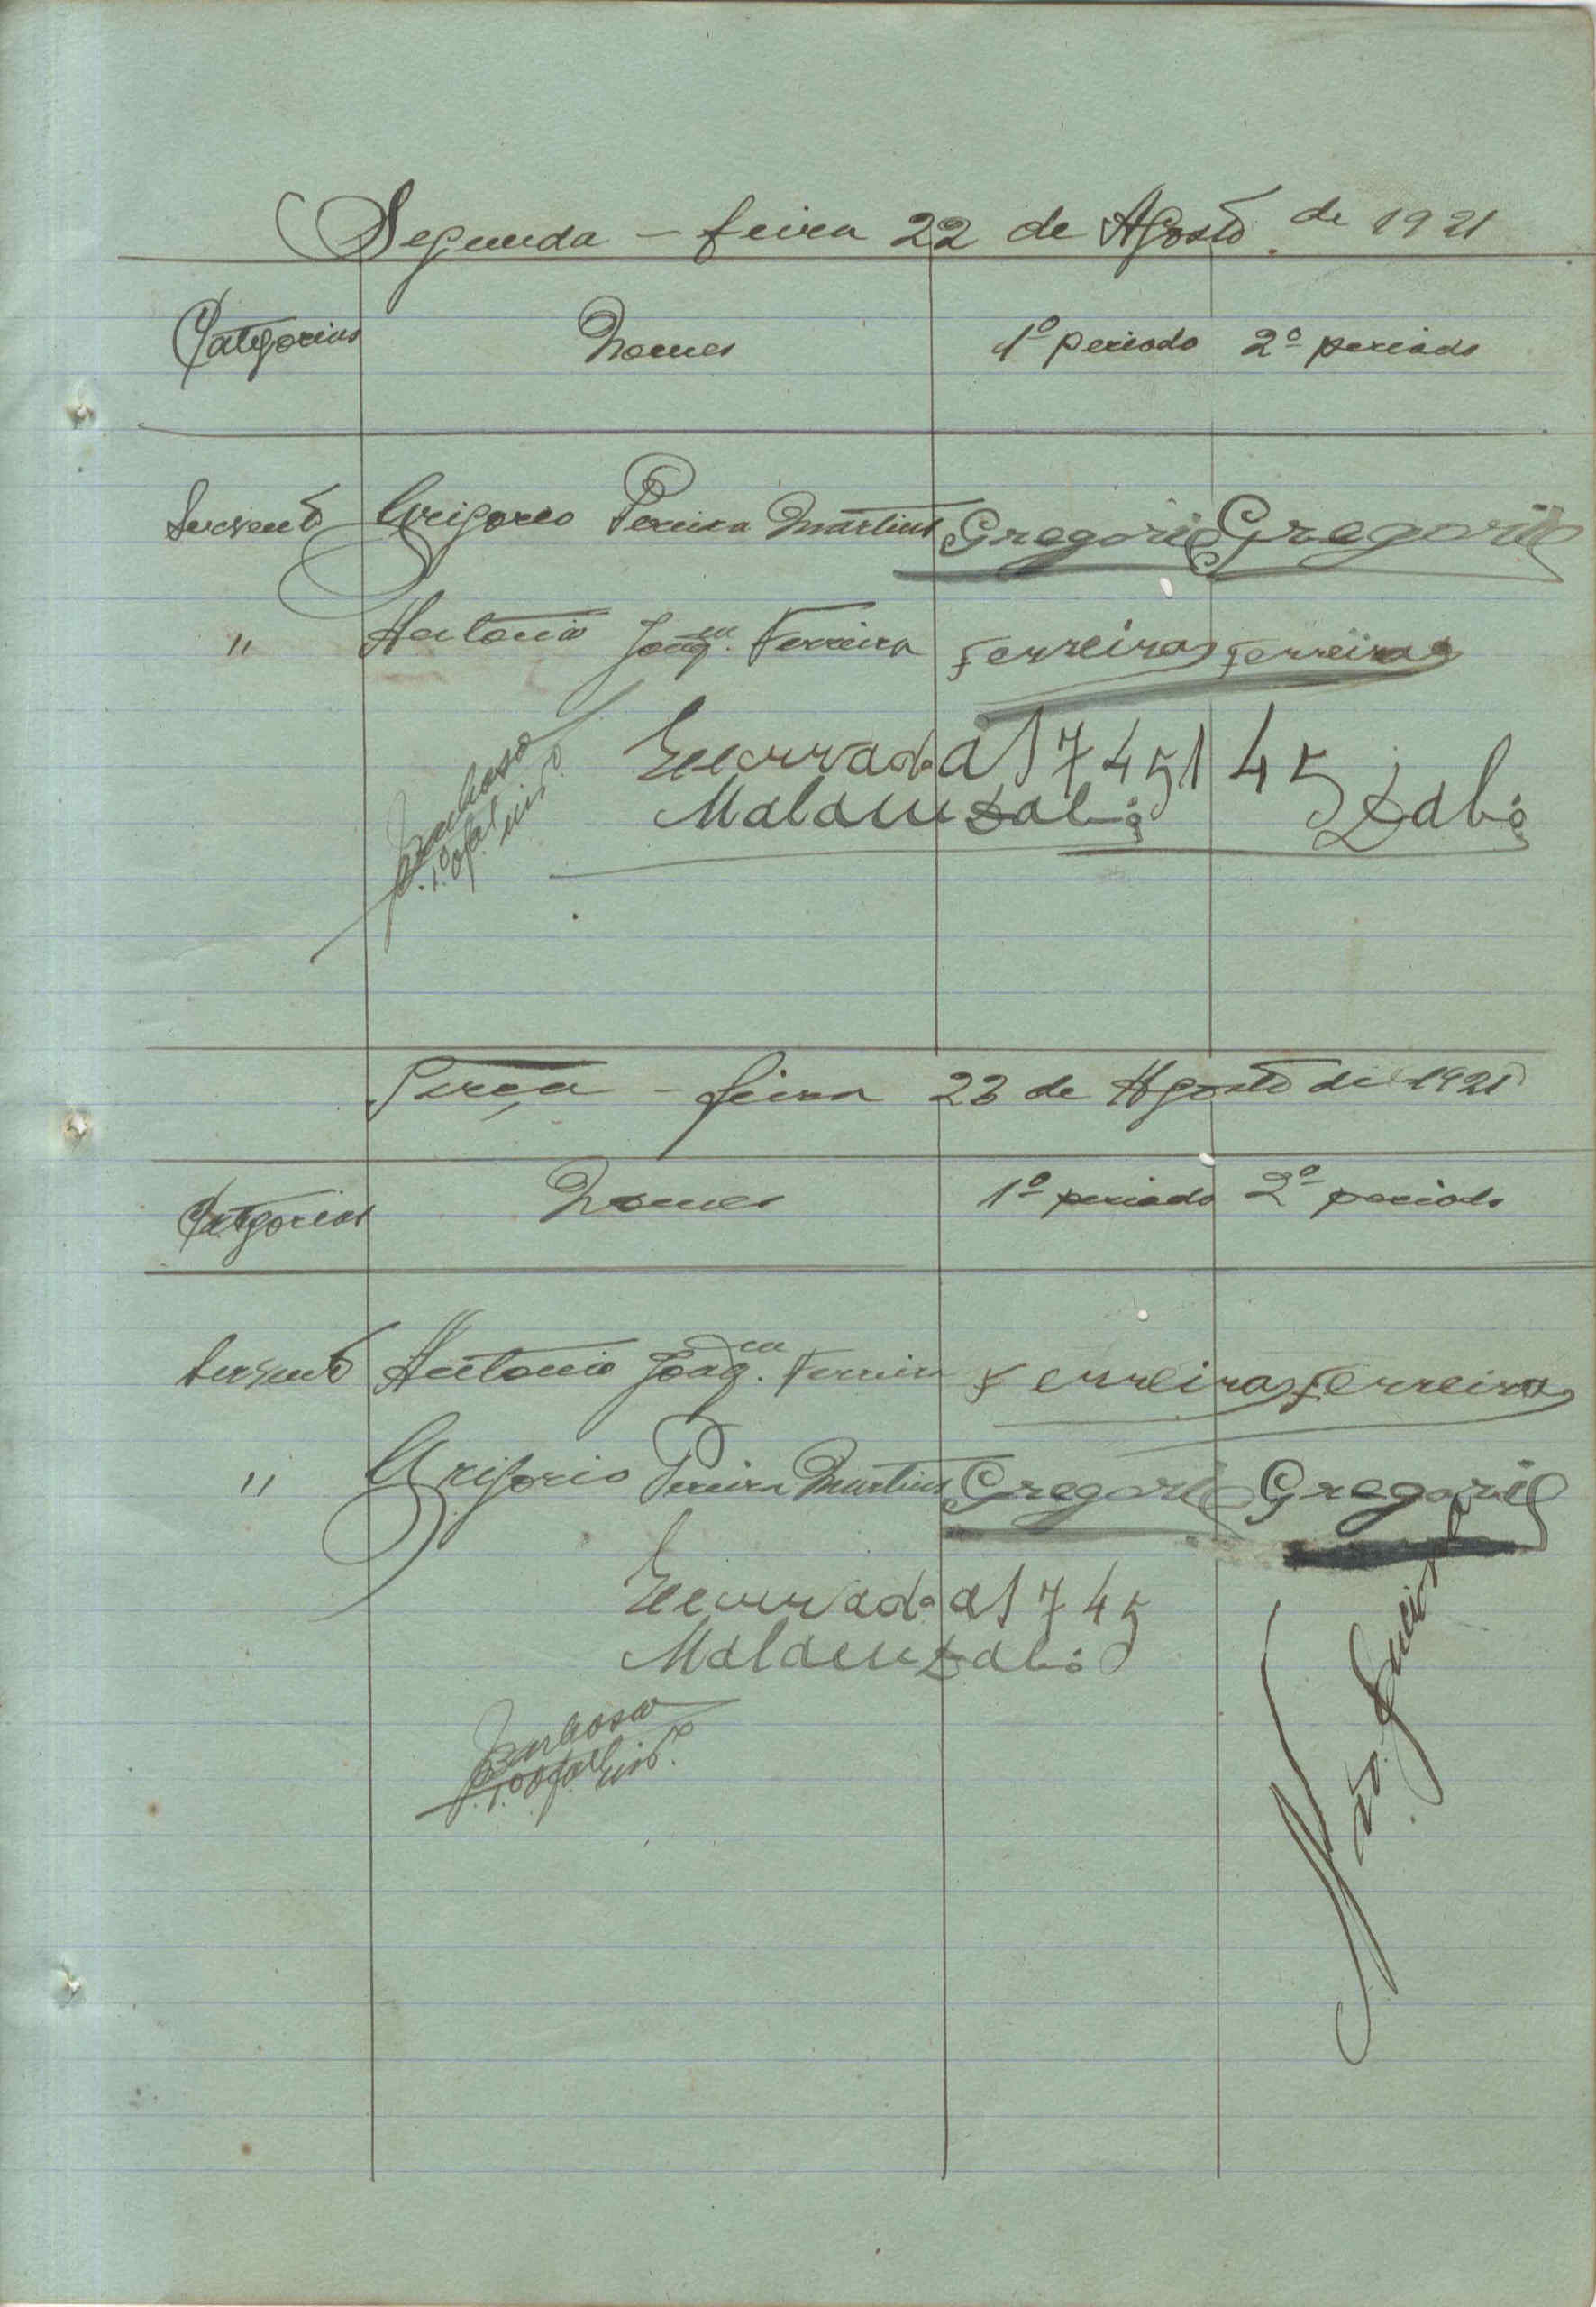 Segunda - feira 22 de Agosto de 1921
Categorias Nomes 1º periodo 2º periodo
Servente Grigorio Pereira Martins Gregorio Gregorio
" Antonio Joaqm. Ferreira Ferreira Ferreira
Encerrado a 1 7 45 1 45
Barbosa
1º ofal
Terça - feira 23 de Agosto de 1921
Categorias Nomes 1º periodo 2º periodo
Servente Antonio Joaqm. Ferreira Ferreira Ferreira
" Grigorio Pereira Martins Gregorio Gregorio
Encerrado a 1 7 45
Barbosa
1º ofal